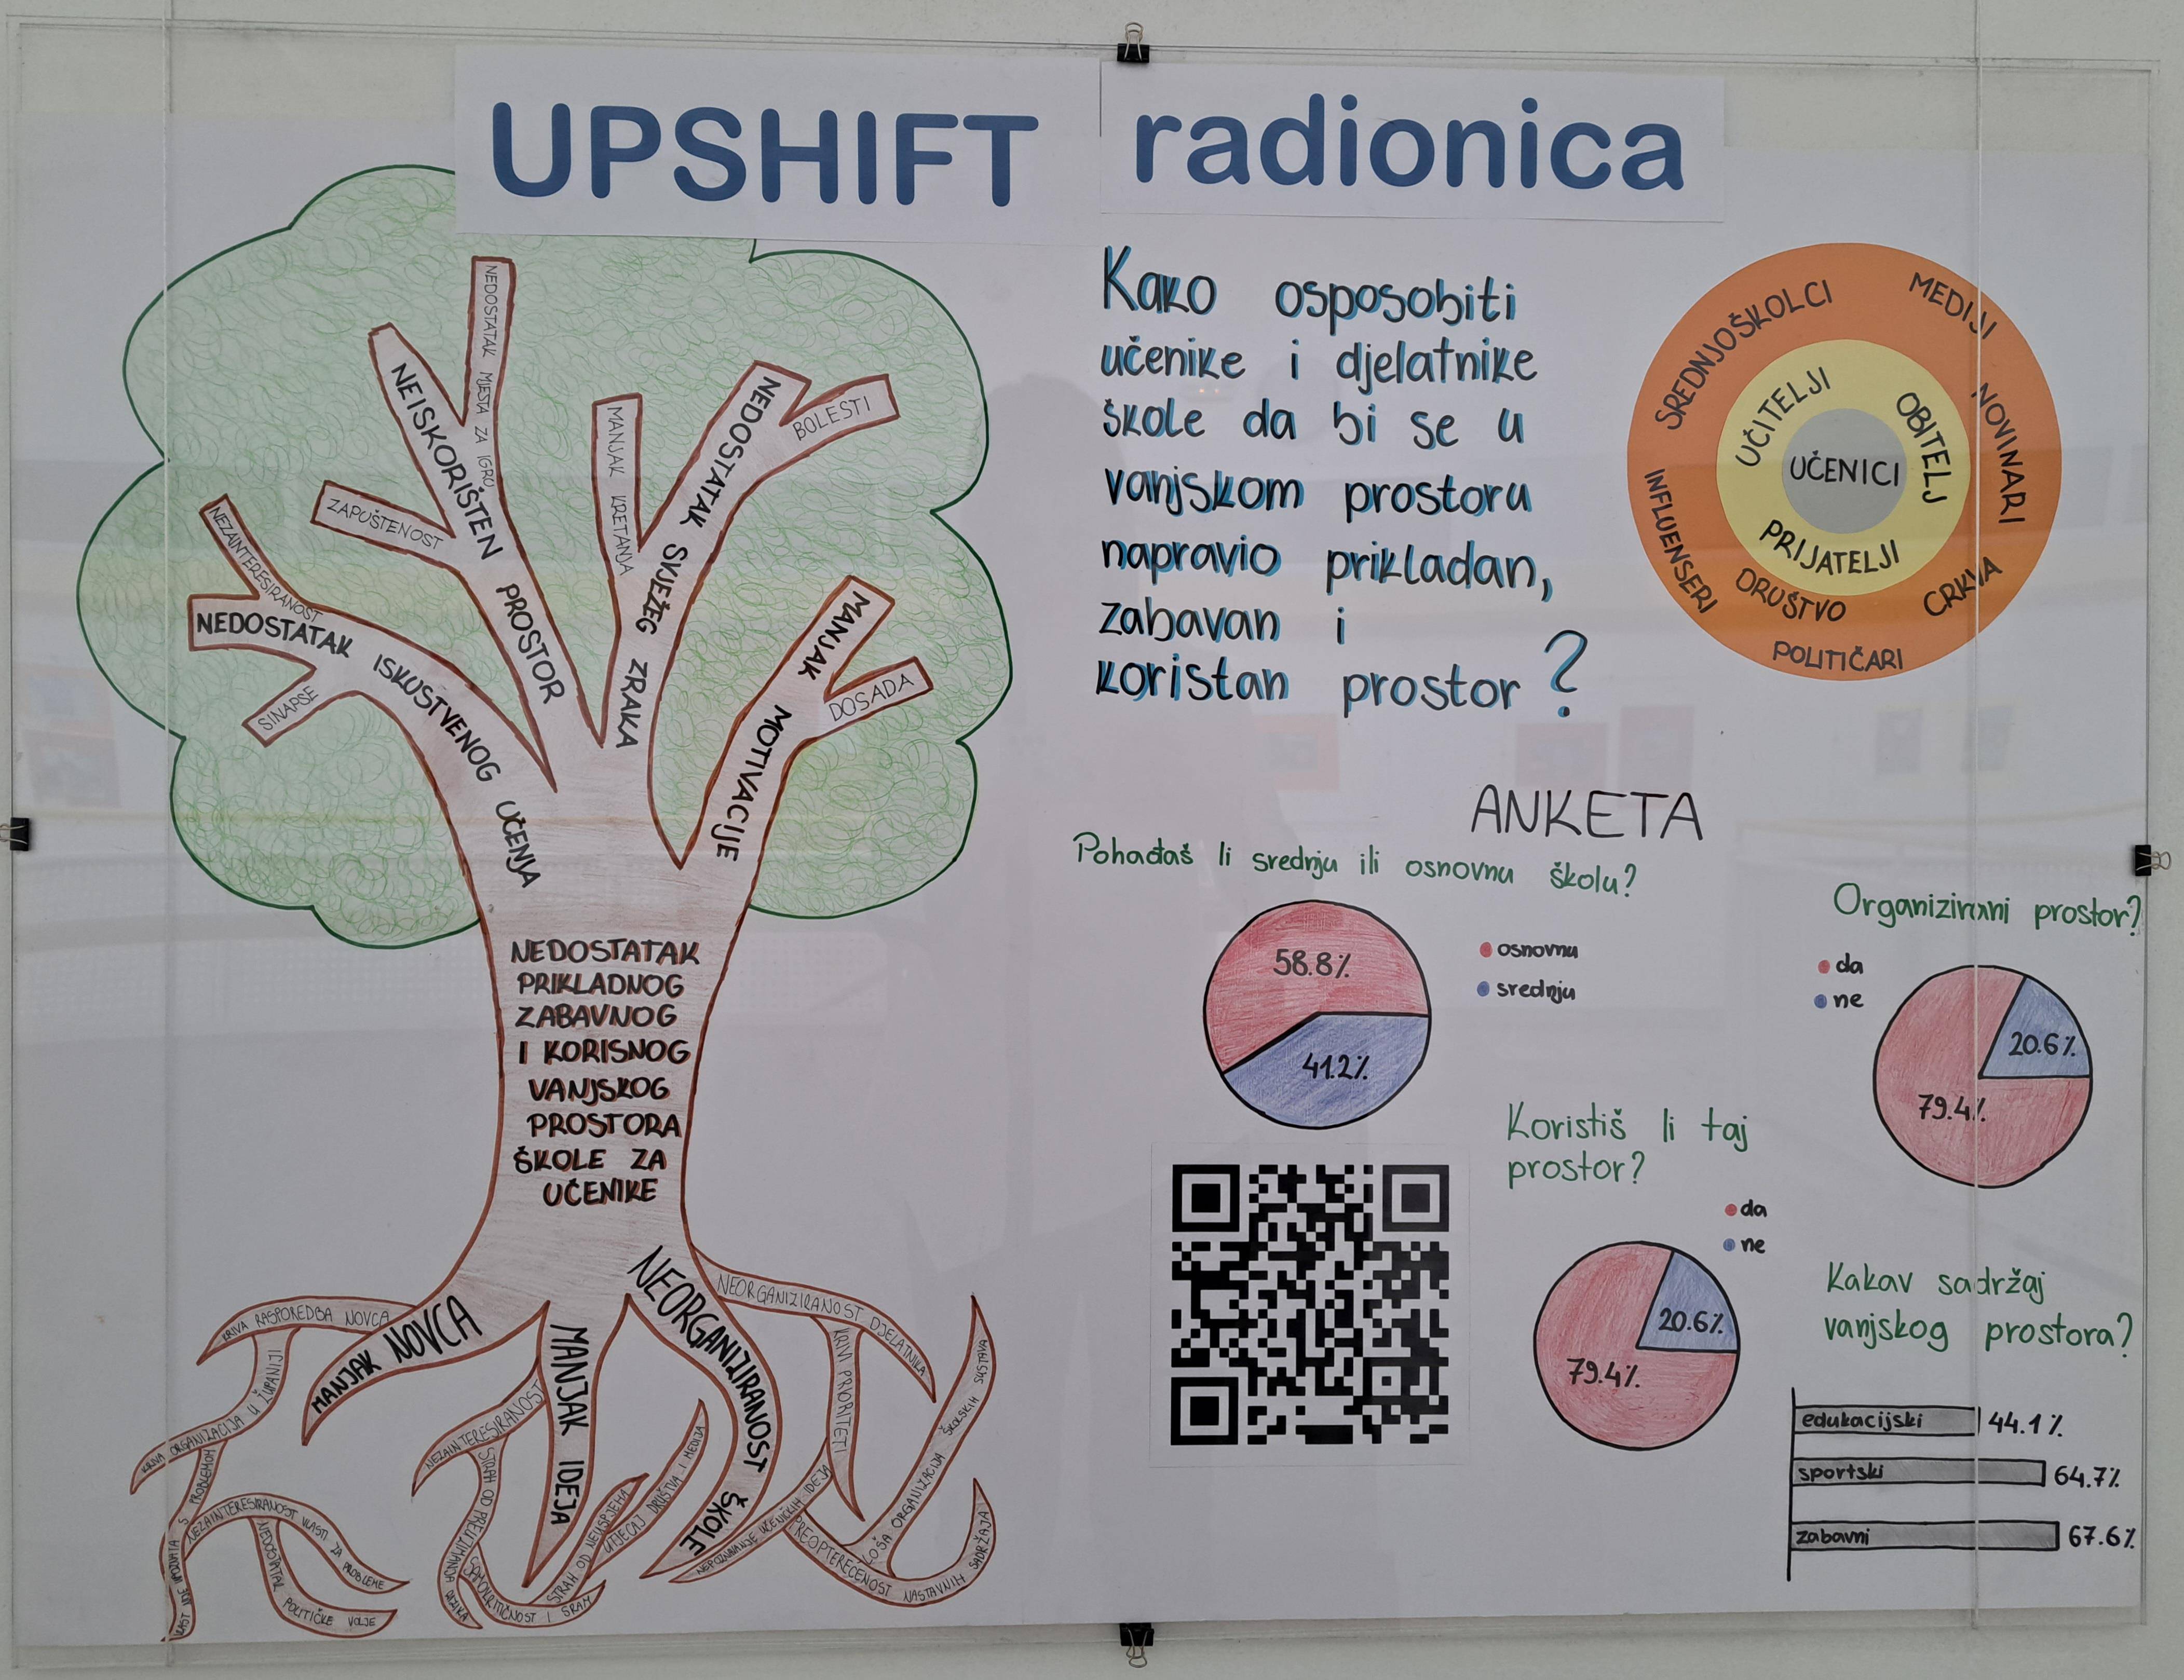 UPSHIFT radionica
NEDOSTATAK MJESTA ZA IGRU
NEISKORIŠTEN PROSTOR
ZAPUŠTENOST
MANJAK KRETANJA
NEDOSTATAK SVJEŽEG ZRAKA
BOLESTI
NEZAINTERESIRANOST
NEDOSTATAK ISKUSTVENOG UČENJA
SINAPSE
MANJAK MOTIVACIJE
DOSADA
NEDOSTATAK
PRIKLADNOG
ZABAVNOG
I KORISNOG
VANJSKOG
PROSTORA
ŠKOLE ZA
UČENIKE
MANJAK NOVCA
KRIVA RASPOREDBA NOVCA
KRIVA ORGANIZACIJA U ŽUPANIJI
VLAST NIJE UPOZNATA S PROBLEMOM
NEZAINTERESIRANOST VLASTI ZA PROBLEME
NEDOSTATAK POLITIČKE VOLJE
MANJAK IDEJA
NEZAINTERESIRANOST
STRAH OD PREUZIMANJA RIZIKA
SAMOKRITIČNOST I SRAM
STRAH OD NEUSPJEHA
UTJECAJ DRUŠTVA I MEDIJA
NEORGANIZIRANOST ŠKOLE
NEORGANIZIRANOST DJELATNIKA
KRIVI PRIORITETI
NEPOZNAVANJE UČENIČKIH IDEJA
PREOPTEREĆENOST NASTAVNIH SADRŽAJA
LOŠA ORGANIZACIJA ŠKOLSKIH SUSTAVA
Kako osposobiti
učenike i djelatnike
škole da bi se u
vanjskom prostoru
napravio prikladan,
zabavan i
koristan prostor?
SREDNJOŠKOLCI
MEDIJI
NOVINARI
CRKVA
POLITIČARI
DRUŠTVO
INFLUENSERI
UČITELJI
OBITELJ
PRIJATELJI
UČENICI
ANKETA
Pohađaš li srednju ili osnovnu školu?
58.8%
41.2%
osnovnu
srednju
Organizirani prostor?
da
ne
20.6%
79.4%
Koristiš li taj
prostor?
da
ne
20.6%
79.4%
Kakav sadržaj
vanjskog prostora?
edukacijski 44.1%
sportski 64.7%
zabavni 67.6%